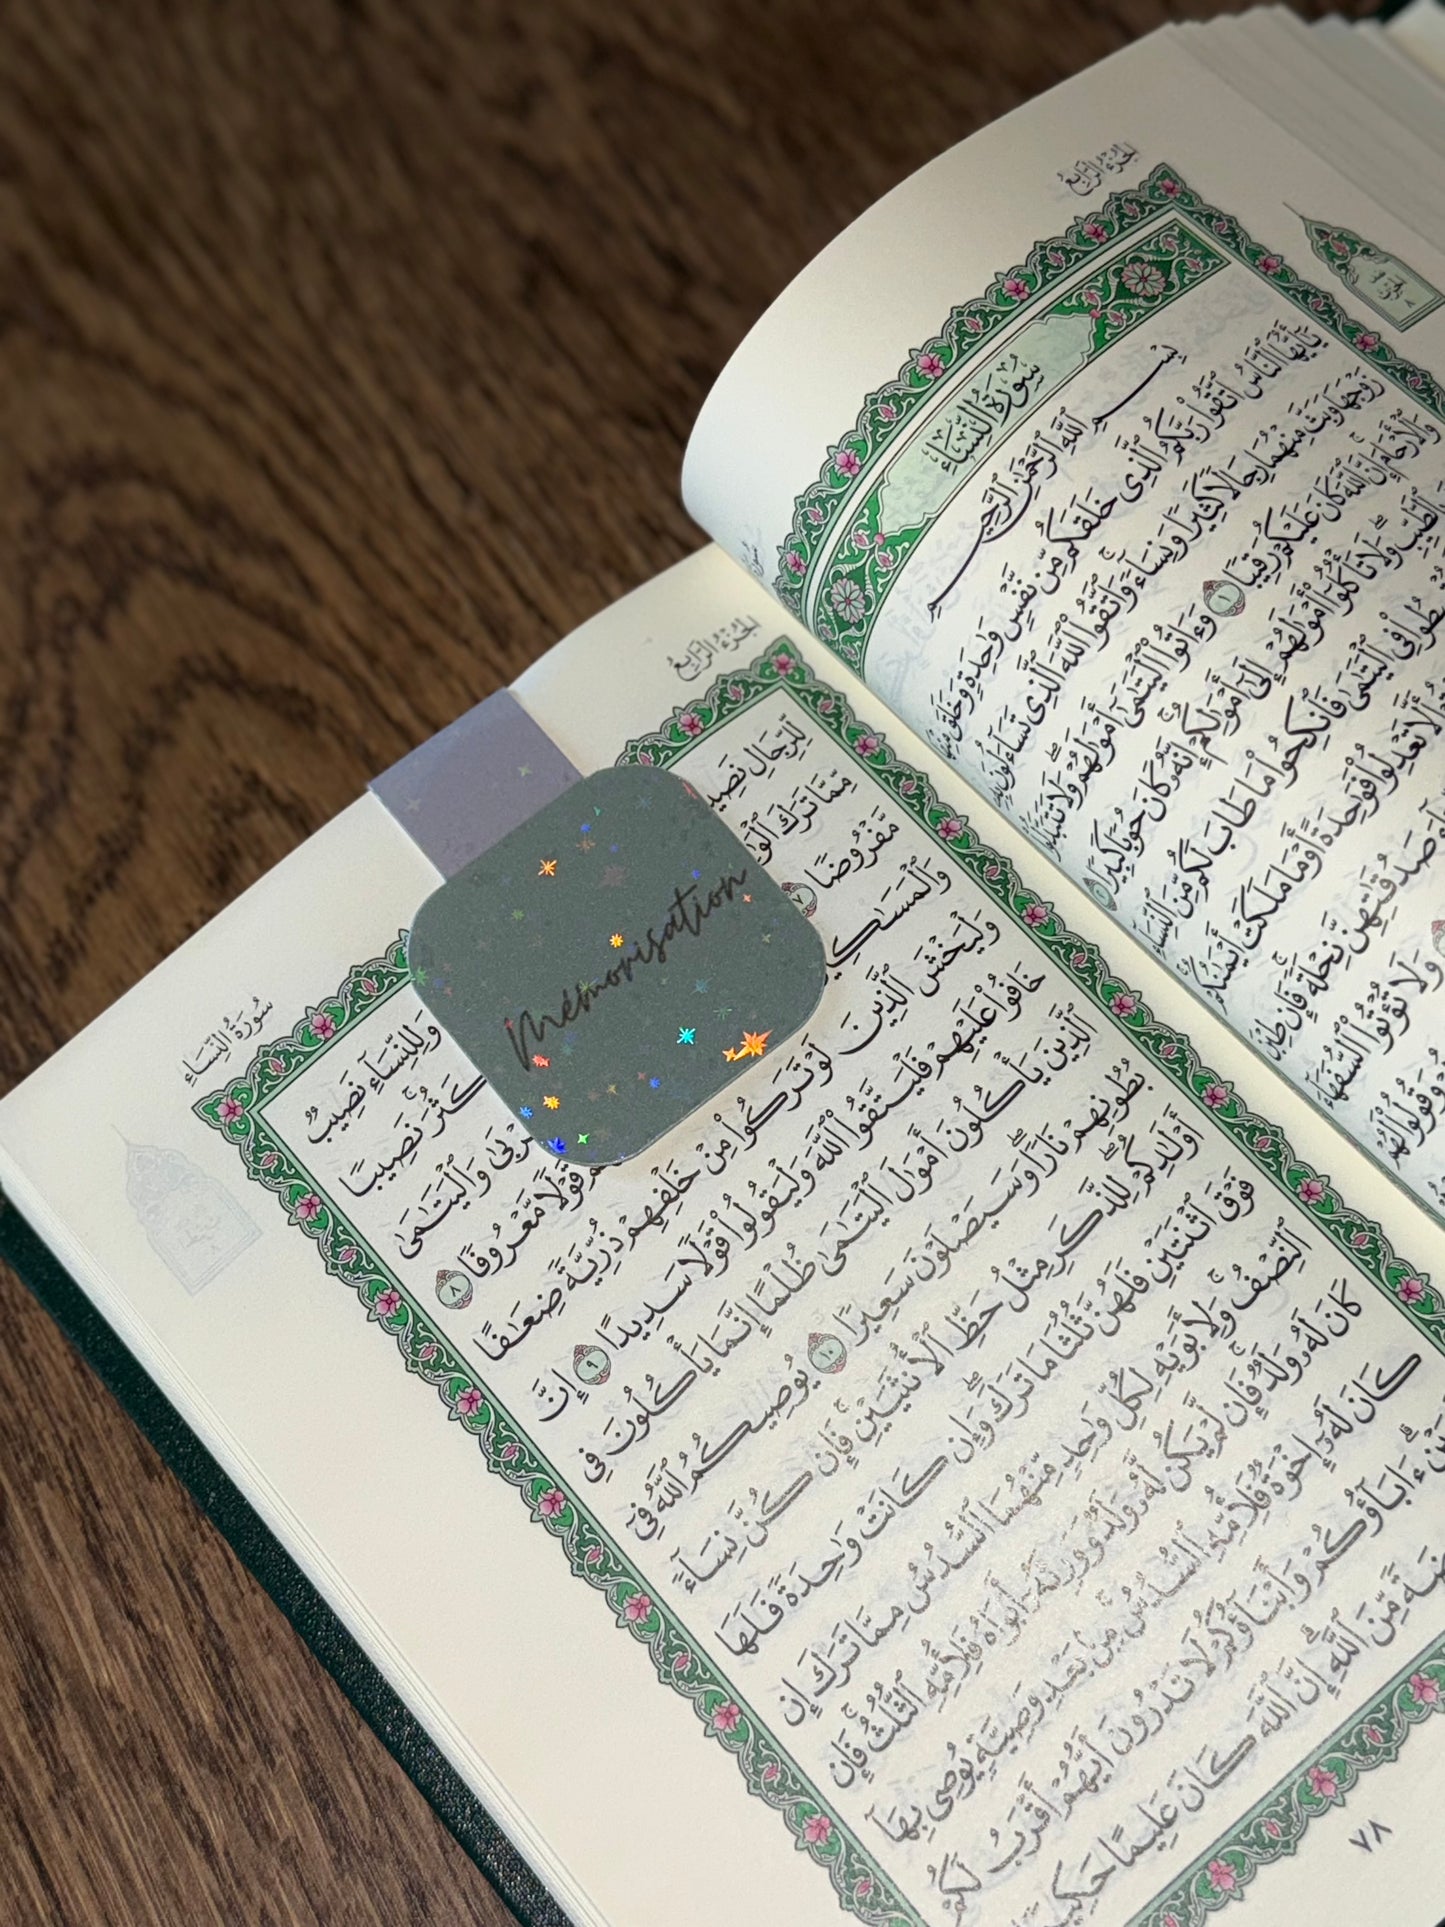 الجزء الرابع
سُورَةُ النِّسَاءِ
بِسْمِ ٱللَّهِ ٱلرَّحْمَٰنِ ٱلرَّحِيمِ
يَٰٓأَيُّهَا ٱلنَّاسُ ٱتَّقُوا۟ رَبَّكُمُ ٱلَّذِى خَلَقَكُم مِّن نَّفْسٍ وَٰحِدَةٍ وَخَلَقَ مِنْهَا
زَوْجَهَا وَبَثَّ مِنْهُمَا رِجَالًا كَثِيرًا وَنِسَآءً وَٱتَّقُوا۟ ٱللَّهَ ٱلَّذِى تَسَآءَلُونَ بِهِۦ
وَٱلْأَرْحَامَ إِنَّ ٱللَّهَ كَانَ عَلَيْكُمْ رَقِيبًا ١ وَءَاتُوا۟ ٱلْيَتَٰمَىٰٓ أَمْوَٰلَهُمْ وَلَا تَتَبَدَّلُوا۟
ٱلطَّيِّبِ وَلَا تَأْكُلُوٓا۟ أَمْوَٰلَهُمْ إِلَىٰٓ أَمْوَٰلِكُمْ إِنَّهُۥ كَانَ حُوبًا كَبِيرًا ٢
فِى ٱلْيَتَٰمَىٰ فَٱنكِحُوا۟ مَا طَابَ لَكُم مِّنَ ٱلنِّسَآءِ
أَلَّا تَعْدِلُوا۟ فَوَٰحِدَةً أَوْ مَا مَلَكَتْ أَيْمَٰنُكُمْ
صَدُقَٰتِهِنَّ نِحْلَةً فَإِن طِبْنَ
وَلَا تُؤْتُوا۟ ٱلسُّفَهَآءَ
وَقُولُوا۟ لَهُمْ
الجزء الرابع
سُورَةُ النِّسَاءِ
لِّلرِّجَالِ نَصِيبٌ وَلِلنِّسَآءِ نَصِيبٌ
مِّمَّا تَرَكَ كَثُرَ نَصِيبًا
مَّفْرُوضًا ٧ وَٱلْيَتَٰمَىٰ
وَٱلْمَسَٰكِينُ قَوْلًا مَّعْرُوفًا ٨
وَلْيَخْشَ ٱلَّذِينَ لَوْ تَرَكُوا۟ مِنْ خَلْفِهِمْ ذُرِّيَّةً ضِعَٰفًا
خَافُوا۟ عَلَيْهِمْ فَلْيَتَّقُوا۟ ٱللَّهَ وَلْيَقُولُوا۟ قَوْلًا سَدِيدًا ٩ إِنَّ
ٱلَّذِينَ يَأْكُلُونَ أَمْوَٰلَ ٱلْيَتَٰمَىٰ ظُلْمًا إِنَّمَا يَأْكُلُونَ فِى
بُطُونِهِمْ نَارًا وَسَيَصْلَوْنَ سَعِيرًا ١٠ يُوصِيكُمُ ٱللَّهُ فِىٓ
أَوْلَٰدِكُمْ لِلذَّكَرِ مِثْلُ حَظِّ ٱلْأُنثَيَيْنِ فَإِن كُنَّ نِسَآءً
فَوْقَ ٱثْنَتَيْنِ فَلَهُنَّ ثُلُثَا مَا تَرَكَ وَإِن كَانَتْ وَٰحِدَةً فَلَهَا
ٱلنِّصْفُ وَلِأَبَوَيْهِ لِكُلِّ وَٰحِدٍ مِّنْهُمَا ٱلسُّدُسُ مِمَّا تَرَكَ إِن
كَانَ لَهُۥ وَلَدٌ فَإِن لَّمْ يَكُن لَّهُۥ وَلَدٌ وَوَرِثَهُۥٓ أَبَوَاهُ فَلِأُمِّهِ ٱلثُّلُثُ فَإِن
كَانَ لَهُۥٓ إِخْوَةٌ فَلِأُمِّهِ ٱلسُّدُسُ مِنۢ بَعْدِ وَصِيَّةٍ يُوصِى بِهَآ
دَيْنٍ ءَابَآؤُكُمْ وَأَبْنَآؤُكُمْ لَا تَدْرُونَ أَيُّهُمْ أَقْرَبُ لَكُمْ
مِّنَ ٱللَّهِ إِنَّ ٱللَّهَ كَانَ عَلِيمًا حَكِيمًا
٧٨
Memorisation